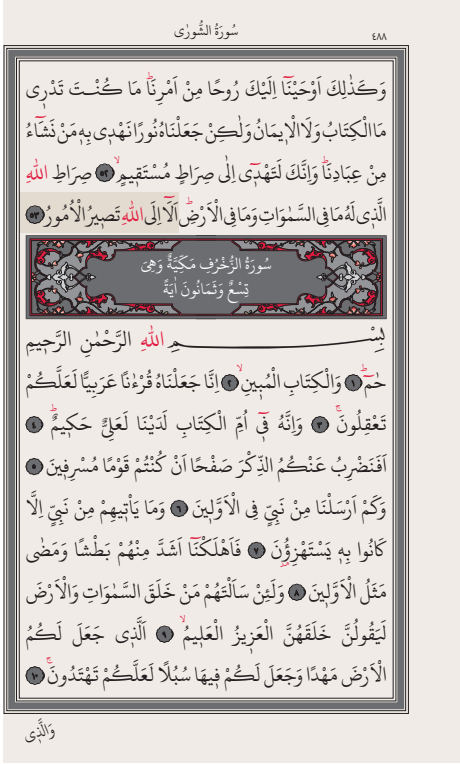 سُورَةُ الشُّورٰى ٤٨٨
وَكَذٰلِكَ اَوْحَيْنَٓا اِلَيْكَ رُوحًا مِنْ اَمْرِنَاۜ مَا كُنْتَ تَدْرٖى
مَا الْكِتَابُ وَلَا الْاٖيمَانُ وَلٰكِنْ جَعَلْنَاهُ نُورًا نَهْدٖى بِهٖ مَنْ نَشَٓاءُ
مِنْ عِبَادِنَاۜ وَاِنَّكَ لَتَهْدٖٓى اِلٰى صِرَاطٍ مُسْتَقٖيمٍۙ ﴿٥٢﴾ صِرَاطِ اللّٰهِ
الَّذٖى لَهُ مَا فِى السَّمٰوَاتِ وَمَا فِى الْاَرْضِۜ اَلَٓا اِلَى اللّٰهِ تَصٖيرُ الْاُمُورُ ﴿٥٣﴾
سُورَةُ الزُّخْرُفِ مَكِّيَّةٌ وَهِىَ
تِسْعٌ وَثَمَانُونَ اٰيَةً
بِسْمِ اللّٰهِ الرَّحْمٰنِ الرَّحٖيمِ
حٰمٓۜ ﴿١﴾ وَالْكِتَابِ الْمُبٖينِۙ ﴿٢﴾ اِنَّا جَعَلْنَاهُ قُرْءٰنًا عَرَبِيًّا لَعَلَّكُمْ
تَعْقِلُونَۚ ﴿٣﴾ وَاِنَّهُ فٖٓى اُمِّ الْكِتَابِ لَدَيْنَا لَعَلِىٌّ حَكٖيمٌۜ ﴿٤﴾
اَفَنَضْرِبُ عَنْكُمُ الذِّكْرَ صَفْحًا اَنْ كُنْتُمْ قَوْمًا مُسْرِفٖينَ ﴿٥﴾
وَكَمْ اَرْسَلْنَا مِنْ نَبِىٍّ فِى الْاَوَّلٖينَ ﴿٦﴾ وَمَا يَاْتٖيهِمْ مِنْ نَبِىٍّ اِلَّا
كَانُوا بِهٖ يَسْتَهْزِؤُ۫نَ ﴿٧﴾ فَاَهْلَكْنَٓا اَشَدَّ مِنْهُمْ بَطْشًا وَمَضٰى
مَثَلُ الْاَوَّلٖينَ ﴿٨﴾ وَلَئِنْ سَاَلْتَهُمْ مَنْ خَلَقَ السَّمٰوَاتِ وَالْاَرْضَ
لَيَقُولُنَّ خَلَقَهُنَّ الْعَزٖيزُ الْعَلٖيمُۙ ﴿٩﴾ اَلَّذٖى جَعَلَ لَكُمُ
الْاَرْضَ مَهْدًا وَجَعَلَ لَكُمْ فٖيهَا سُبُلًا لَعَلَّكُمْ تَهْتَدُونَۚ ﴿١٠﴾
وَالَّذٖى